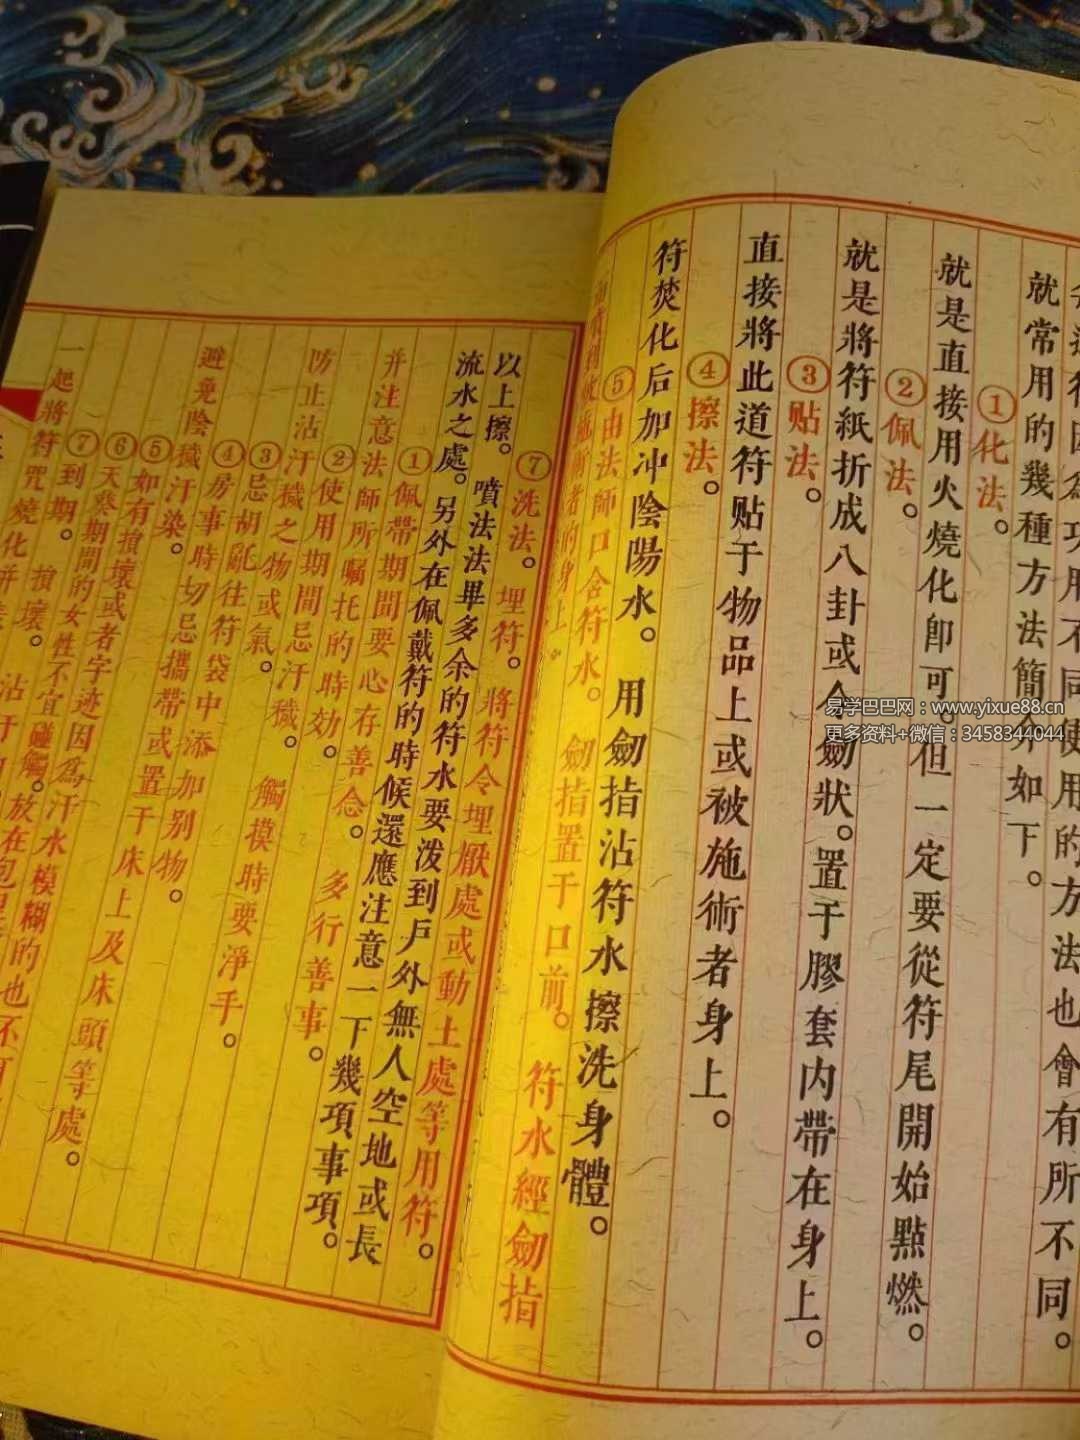 使用的方法也會有所不同。
就常用的幾種方法簡介如下。
①化法。
就是直接用火燒化即可。但一定要從符尾開始點燃。
②佩法。
就是將符紙折成八卦或令劍狀。置于膠套内帶在身上。
③贴法。
直接將此道符贴于物品上或被施術者身上。
④擦法。
符焚化后加冲陰陽水。用劍指沾符水擦洗身體。
⑤由法師口含符水。劍指置于口前。符水經劍指
的身上。
⑦洗法。埋符。將符令埋厭處或動土處等用符。
以上擦。噴法法畢多余的符水要泼到戶外無人空地或長
流水之處。另外在佩戴符的時候還應注意一下幾項事項。
①佩帶期間要心存善念。多行善事。
并注意法師所囑托的時効。
②使用期間忌汙穢。觸摸時要淨手。
防止沾汙穢之物或氣。
③忌胡亂往符袋中添加别物。
④房事時切忌攜帶或置于床上及床頭等處。
避免陰穢汙染。
⑤如有損壞或者字迹因爲汙水模糊的也不
⑥天葵期間的女性不宜碰觸。放在包
⑦到期。損壞。沾于
一起將符咒燒化并
易学巴巴网：www.yixue88.cn
更多资料+微信：3458344044